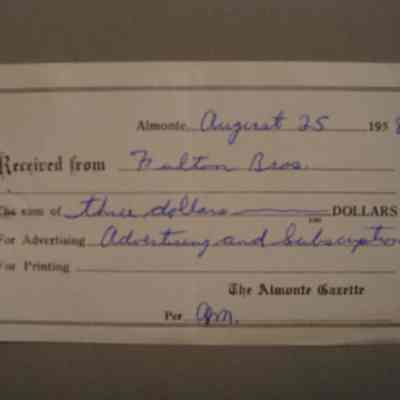 Almonte August 25 1958
Received from Fulton Bros.
The sum of three dollars 100 DOLLARS
For Advertising Advertising and Subscription
For Printing
The Almonte Gazette
Per